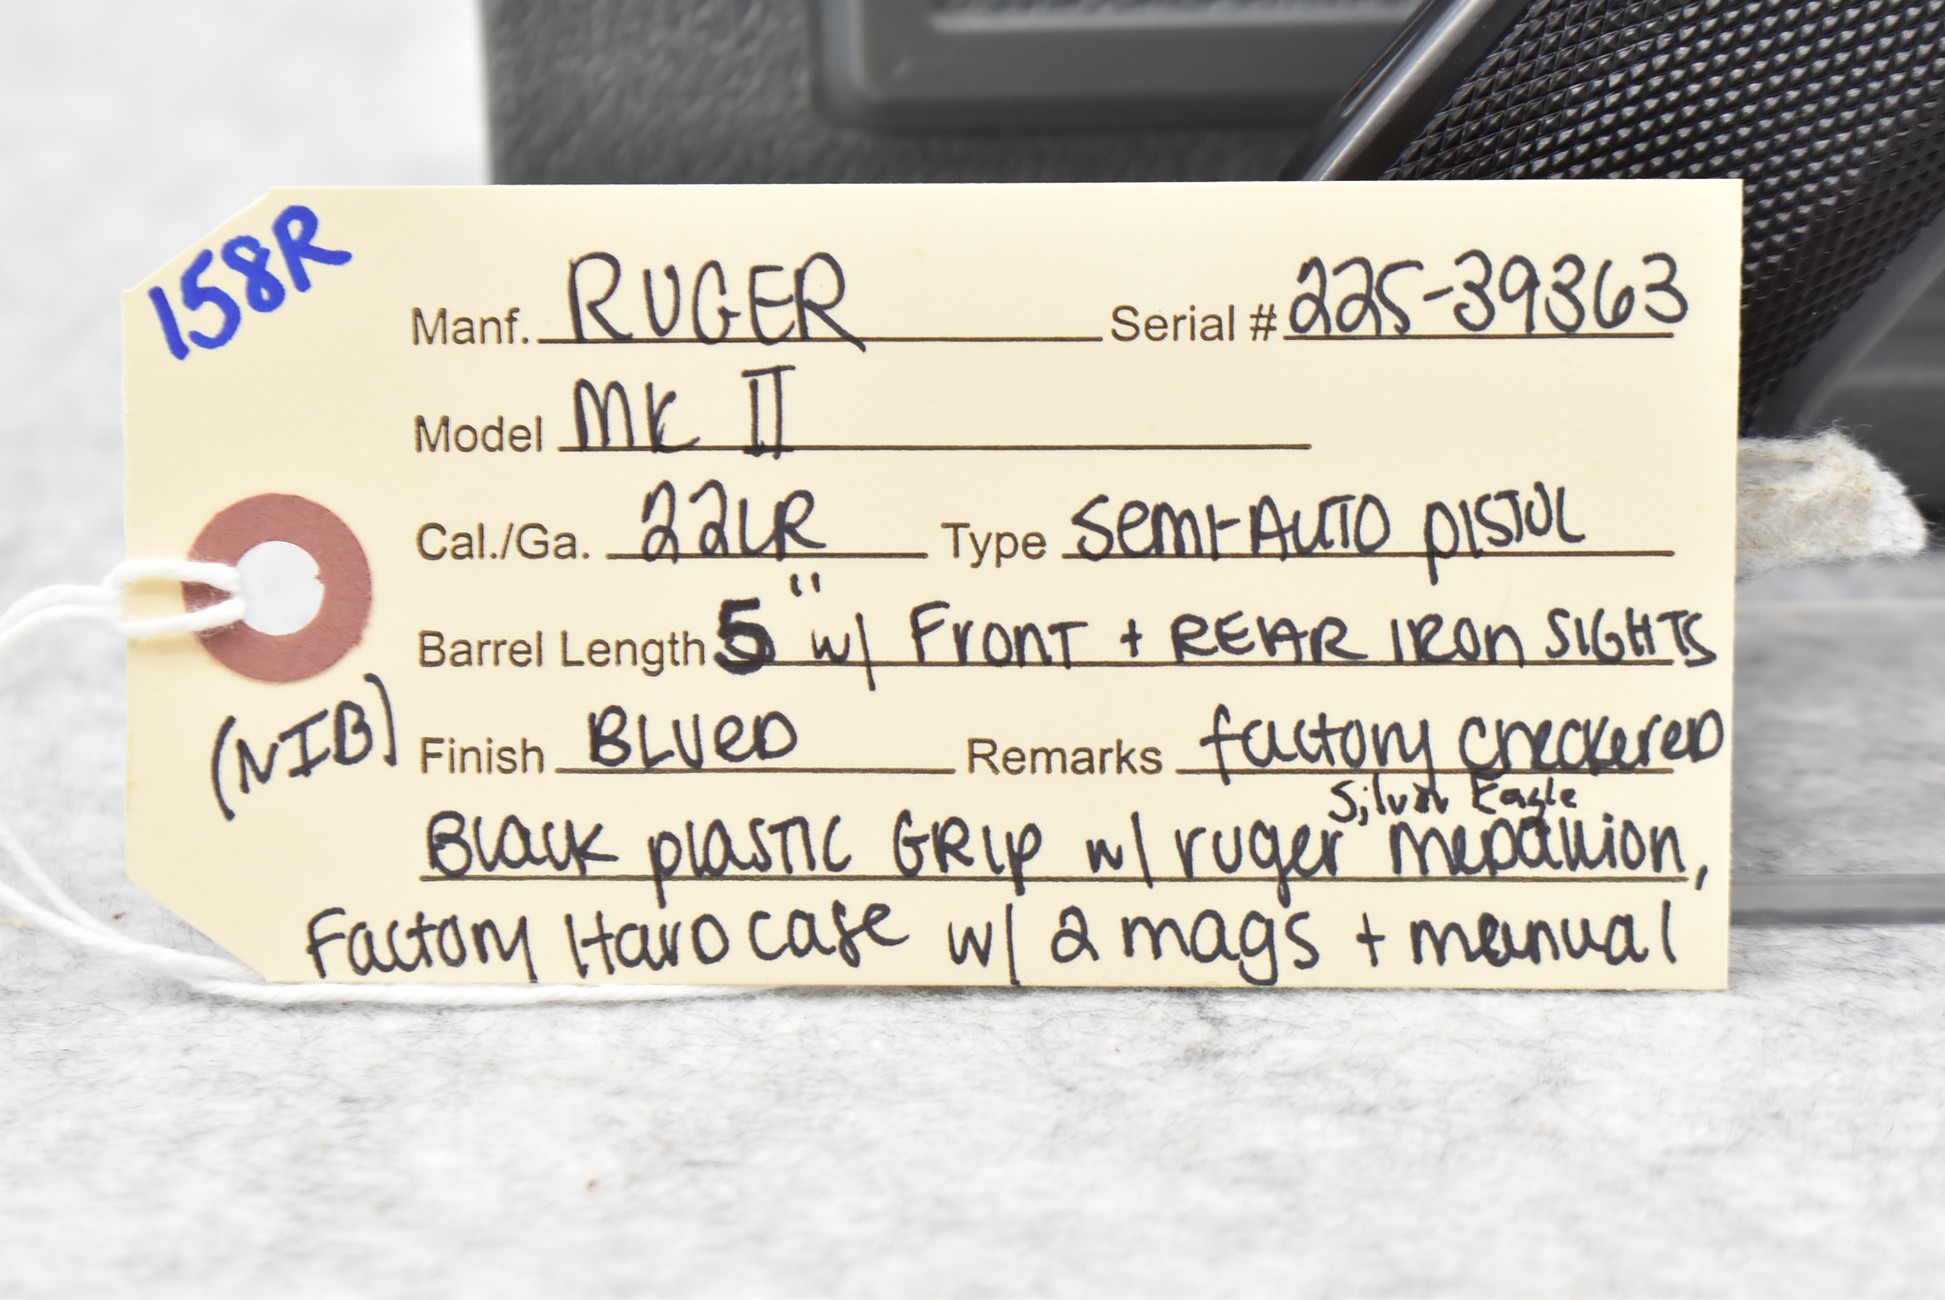 158R
Manf. RUGER Serial # 225-39363
Model MK II
Cal./Ga. 22LR Type Semi-AUTO PISTOL
Barrel Length 5" w/ FRONT + REAR IRON SIGHTS
(NIB) Finish BLUED Remarks factory checkered
Silver Eagle
Black plastic GRIP w/ ruger medallion,
Factory Hard case w/ 2 mags + manual